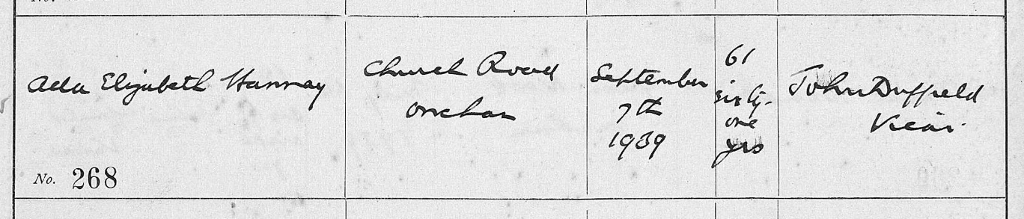 Ada Elizabeth Hannay
No. 268
Church Road
Onchan
September
7th
1939
61
sixty-
one
yrs
John Duffield
Vicar.